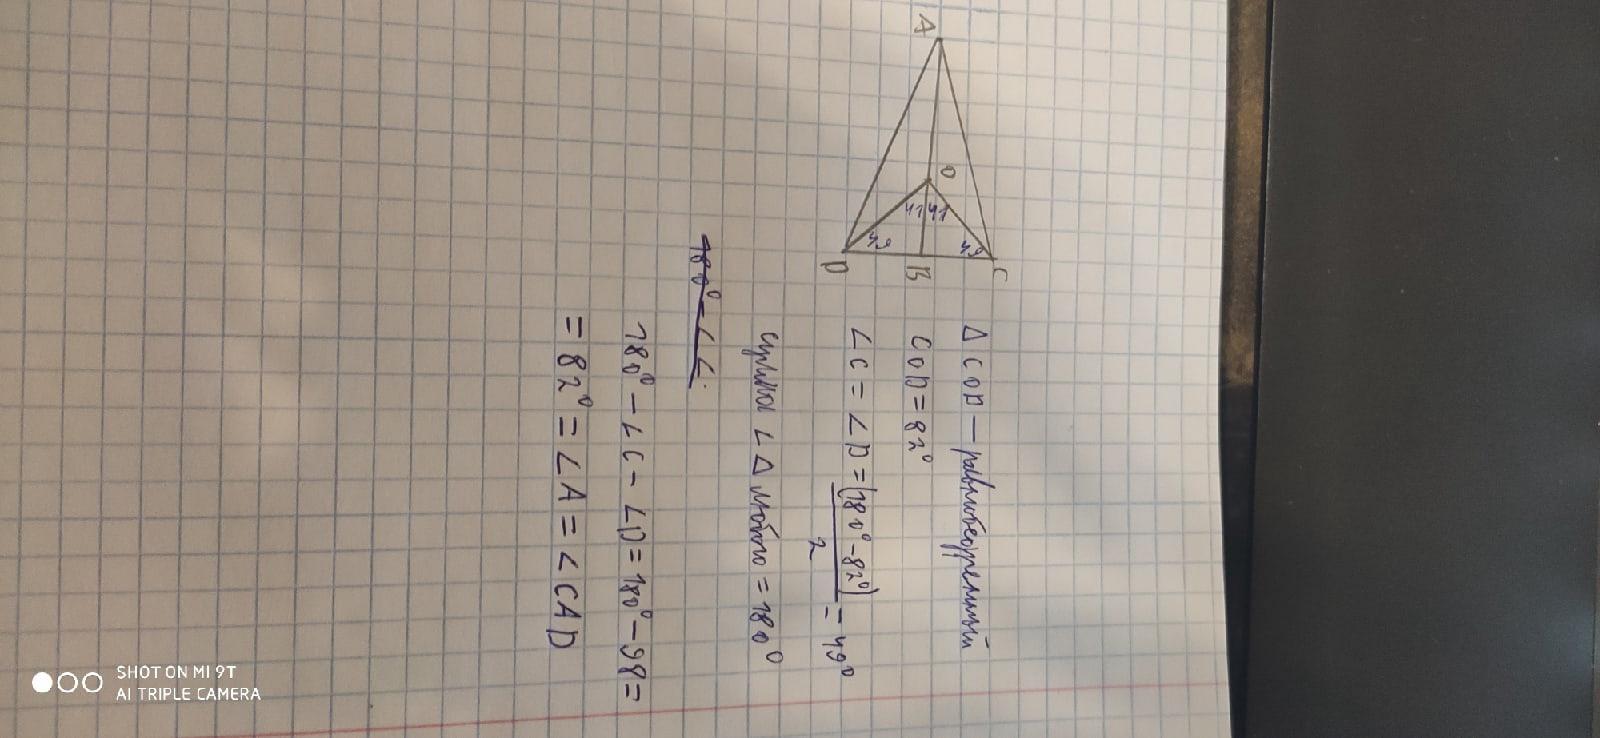 A
O
41 41
49 49
D B C
Δ COD — равнобедренный
COD = 82°
∠C = ∠D = (180° - 82°) / 2 = 49°
сумма ∠ Δ любого = 180°
180° = ∠ ∠
180° - ∠C - ∠D = 180° - 98 =
= 82° = ∠A = ∠CAD
SHOT ON MI 9T
AI TRIPLE CAMERA